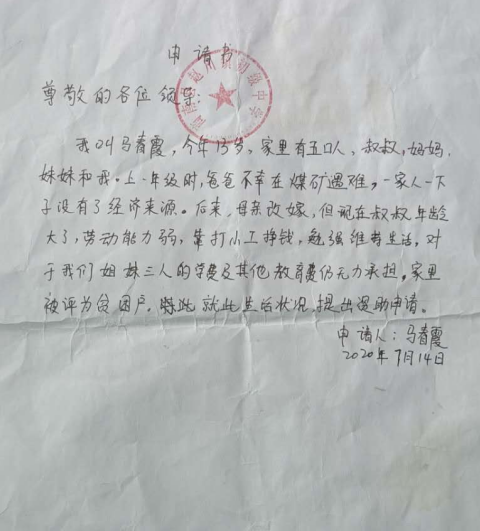 申请书
尊敬的各位领导：
我叫马春霞，今年13岁。家里有五口人，叔叔，妈妈，
妹妹和我。上一年级时，爸爸不幸在煤矿遇难，一家人一下
子没有了经济来源。后来，母亲改嫁，但现在叔叔年龄
大了，劳动能力弱，靠打小工挣钱，勉强维持生活，对
于我们姐妹三人的学费及其他教育费仍无力承担。家里
被评为贫困户。特此就此生活状况，提出援助申请。
申请人：马春霞
2020年7月14日